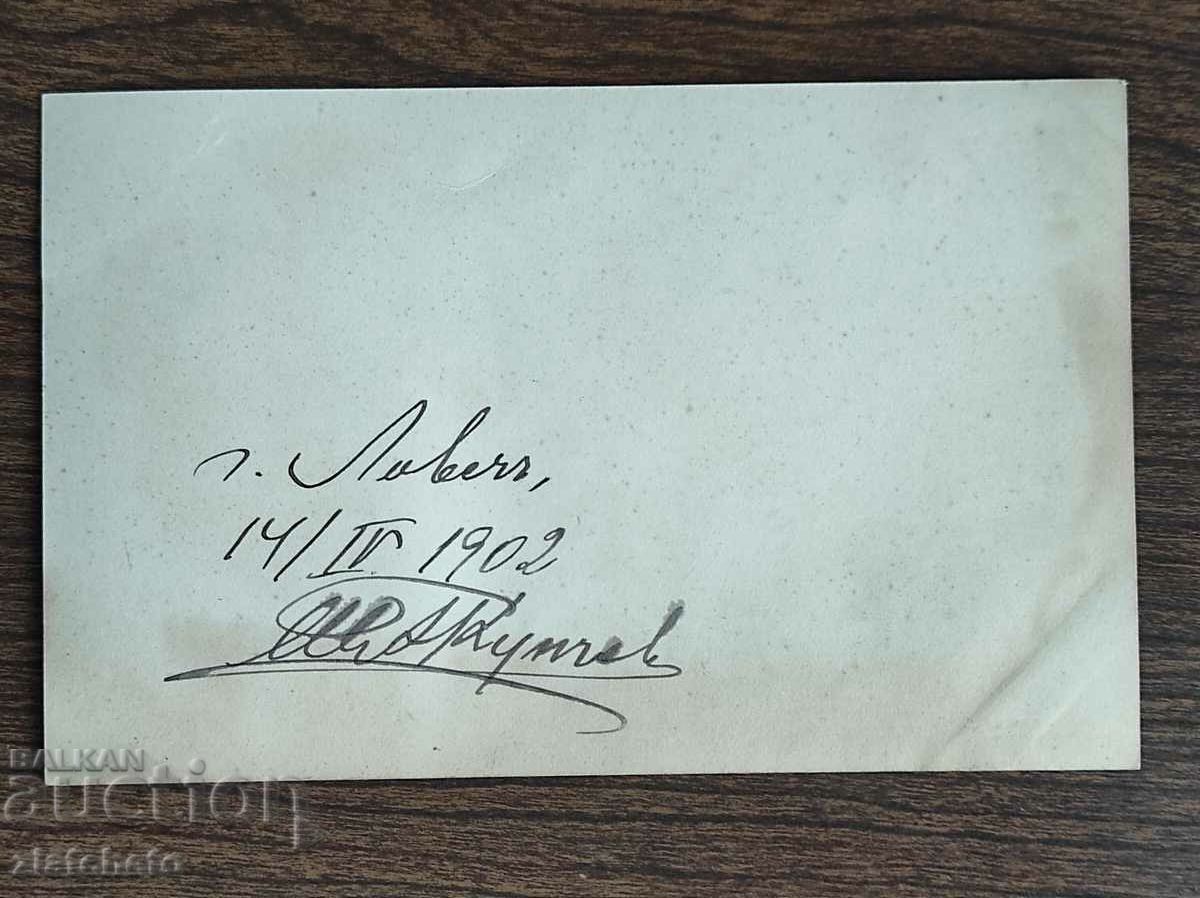 г. Ловечъ,
14/IV 1902
BALKAN
auction
zlatcheto